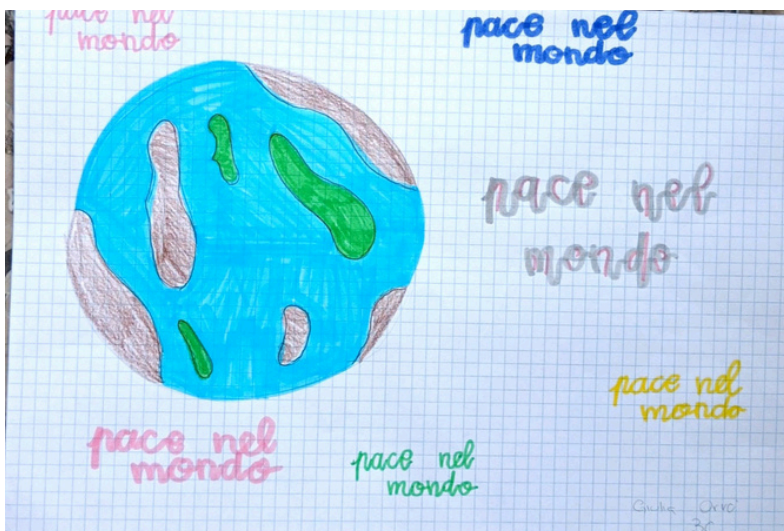 pace nel
mondo
pace nel
mondo
pace nel
mondo
pace nel
mondo
pace nel
mondo
pace nel
mondo